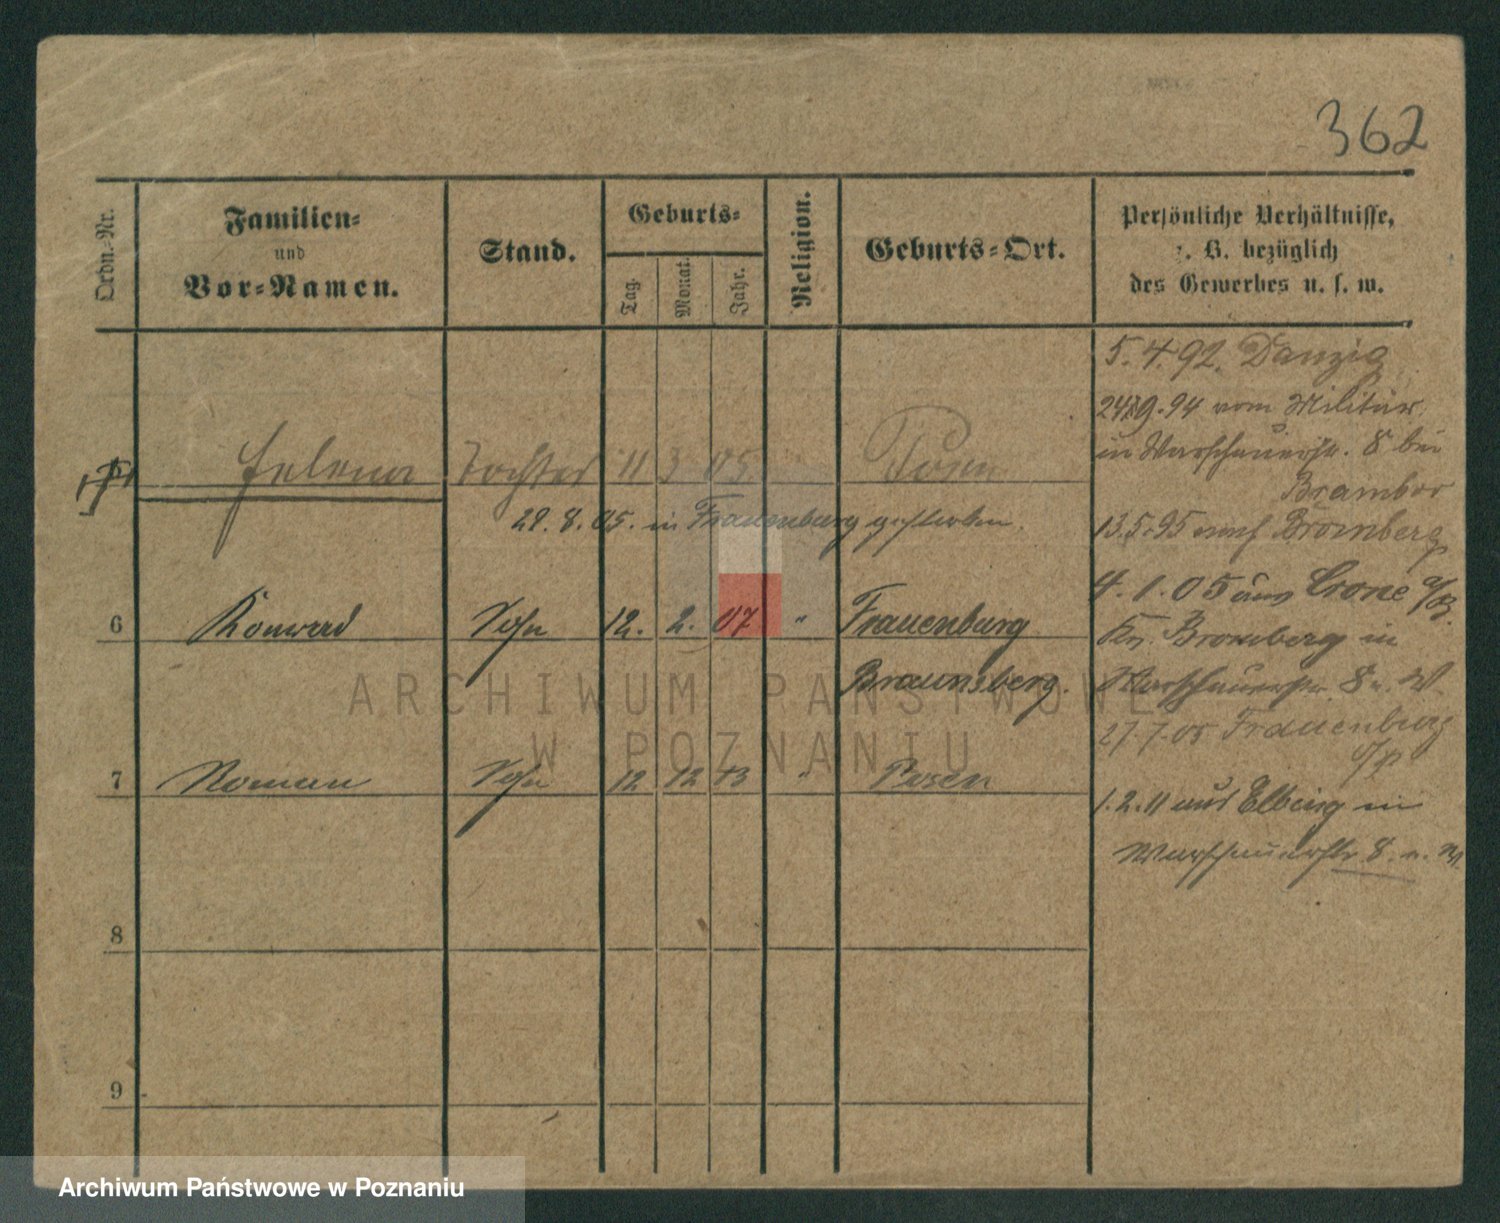 362
Ordn.-Nr.
Familien-
und
Vor-Namen.
Stand.
Geburts-
Tag.
Monat.
Jahr.
Religion.
Geburts-Ort.
Persönliche Verhältnisse,
z. B. bezüglich
des Gewerbes u. s. w.
5.4.92. Danzig
vom Militär
in Warschauerstr. 8 bei
Brambor
13.5.95 auf Bromberg
4.1.05 aus Crone a/B.
Kr. Bromberg in
Warschauerstr. 8 n. W.
27.7.05 Frauenburg
o/p
1.2.11 aus Elbing in
Warschauerstr. 8. n. W.
Helena Tochter 11 3 05. Posen
29.8.05. in Frauenburg gestorben.
6 Konrad Sohn 12. 2. 07 " Frauenburg
Braunsberg.
7 Roman Sohn 12 12 13 " Posen
8
9
ARCHIWUM PAŃSTWOWE
W POZNANIU
Archiwum Państwowe w Poznaniu